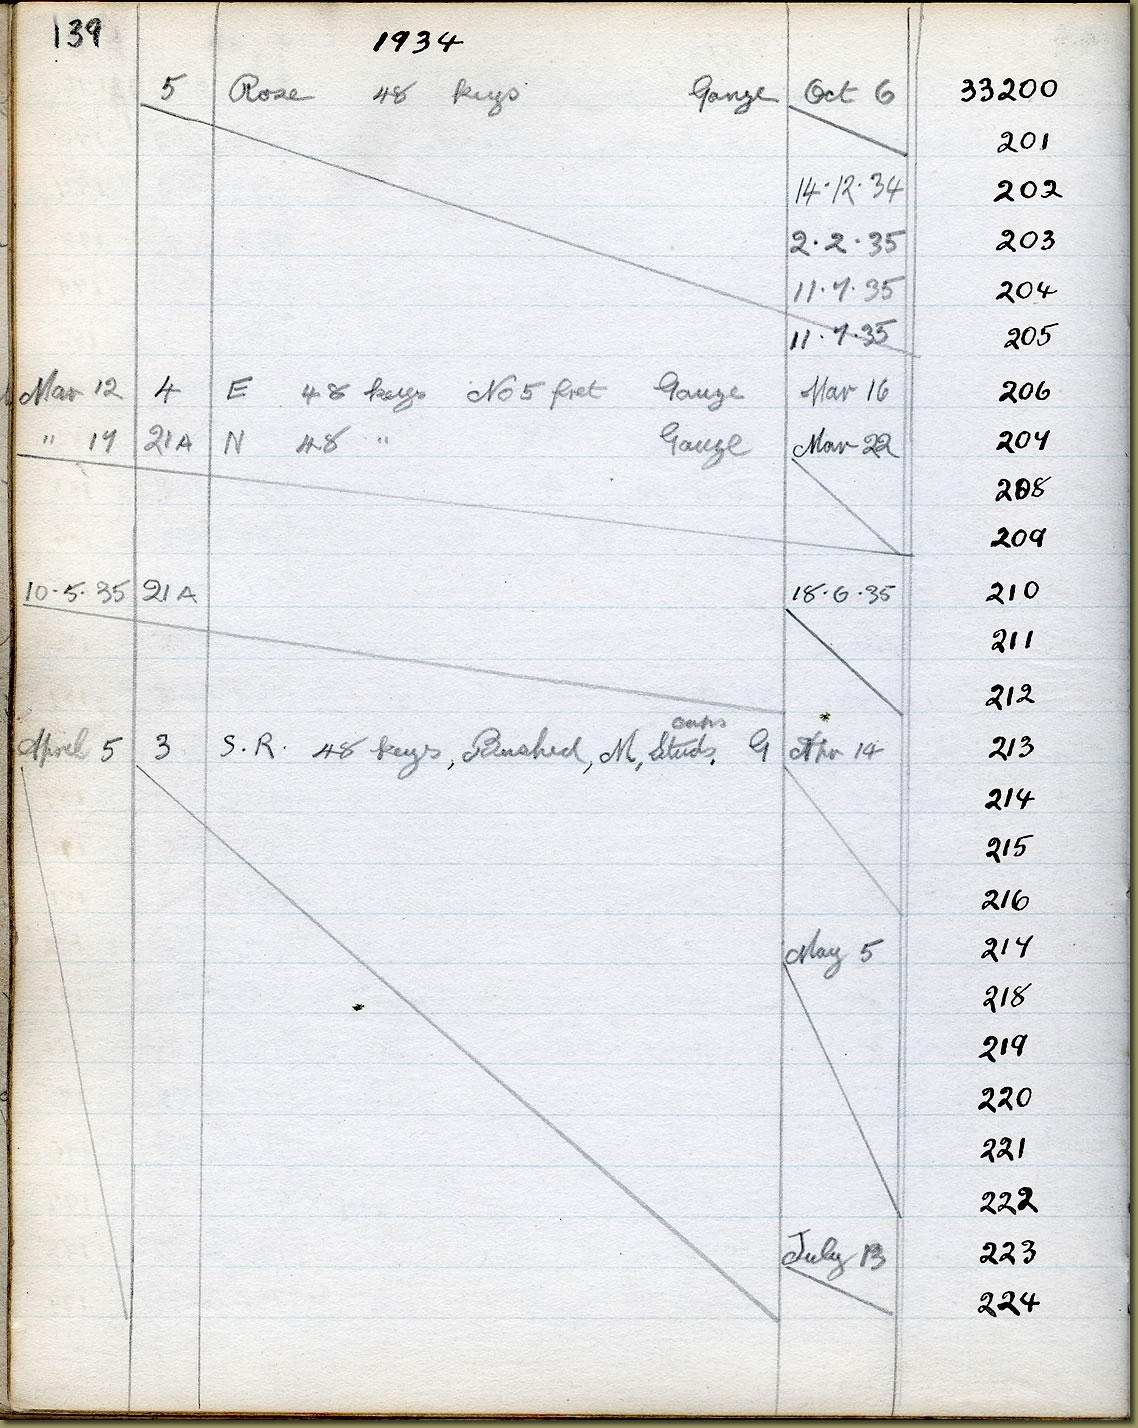 139 1934
5 Rose 48 keys Gauge Oct 6 33200
201
14·12·34 202
2·2·35 203
11·7·35 204
11·7·35 205
Mar 12 4 E 48 keys No 5 fret Gauge Mar 16 206
" 17 21A N 48 " Gauge Mar 22 207
208
209
10·5·35 21A 18·6·35 210
211
212
April 5 3 S.R. 48 keys, Bushed, M, Studs. G Apr 14 213
214
215
216
May 5 217
218
219
220
221
222
July 13 223
224